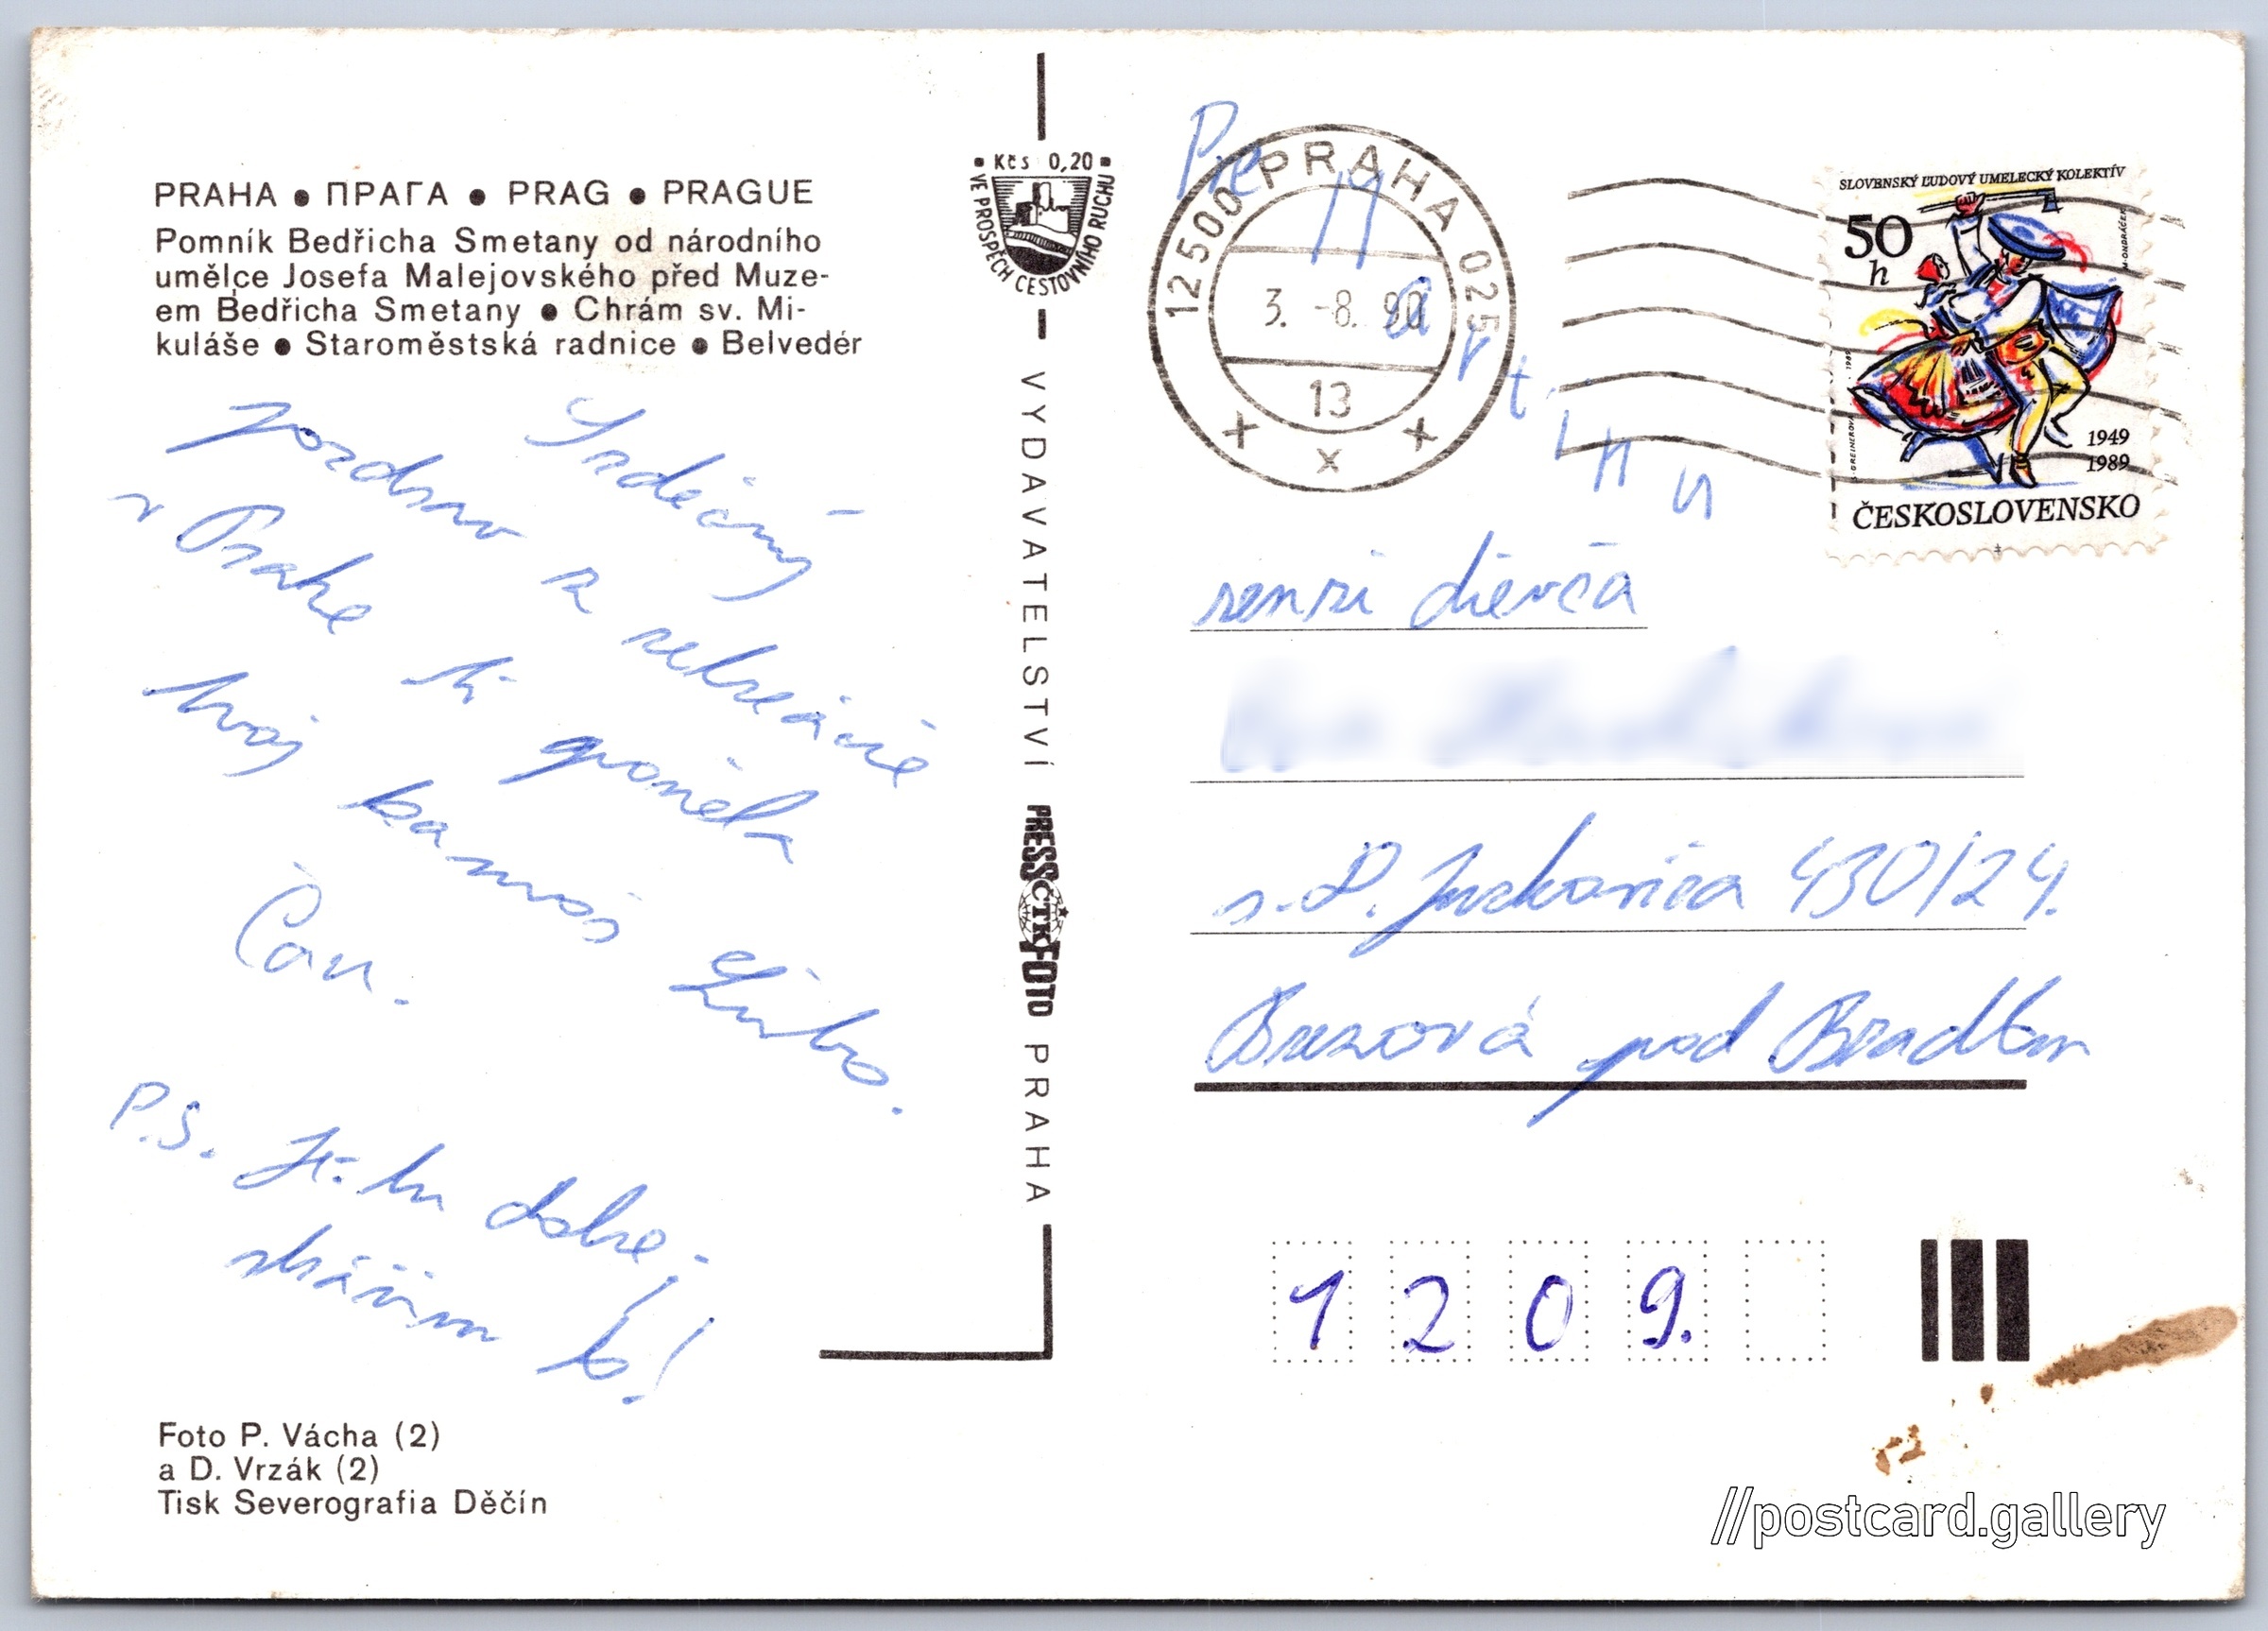 PRAHA • ПРАГА • PRAG • PRAGUE
Pomník Bedřicha Smetany od národního
umělce Josefa Malejovského před Muze-
em Bedřicha Smetany • Chrám sv. Mi-
kuláše • Staroměstská radnice • Belvedér
Srdečný
pozdrav z rekreácie
v Prahe ti posiela
tvoj kamoš Ľubo.
Čau.
P.S. Je tu dobre,
strážim to!
Foto P. Vácha (2)
a D. Vrzák (2)
Tisk Severografia Děčín
Kčs 0,20
VE PROSPĚCH CESTOVNÍHO RUCHU
VYDAVATELSTVÍ PRESSFOTO PRAHA
ČTK
125 00 PRAHA 025
3. -8. 90
13
SLOVENSKÝ ĽUDOVÝ UMELECKÝ KOLEKTÍV
50
h
1949
1989
ČESKOSLOVENSKO
senzi dievča
s. D. Jurkoviča 430/24.
Brezová pod Bradlom
1 2 0 9.
//postcard.gallery